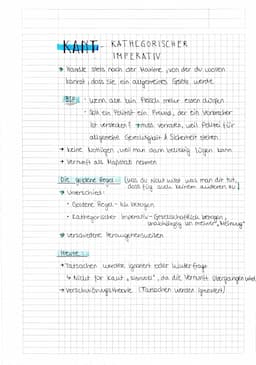 KANT - KATHEGORISCHER
IMPERATIV
→ Handle stets nach der Maxime, von der du wollen
kannst, dass sie ein allgemeines Gesetz werde.
BSP • Wenn aber kein Fleisch mehr essen dürfen
• Soll ein Polizist ein Freund, der ein Verbrecher
ist verraten? → muss verraten, weil Polizei für
allgemeine Gerechtigkeit & Sicherheit stehen
→ keine Notlügen, weil man dann beliebig lügen kann
→ Vernunft als Maßstab nehmen
Die goldene Regel (was du nicht willst was man dir tut,
dass füg auch keinem anderen zu!)
→ Unterschied:
• Goldene Regel - Ich bezogen
• Kathegorischer Imperativ - Gesellschaftlich bezogen,
unabhängig von meiner "Meinung"
→ verschiedene Herangehensweisen
Heute:
→ Tatsachen werden ignoriert oder hinterfragt
↳ Nicht für Kant, da die Vernunft übergangen wird
→ Verschwörungstheorie (Tatsachen werden ignoriert)